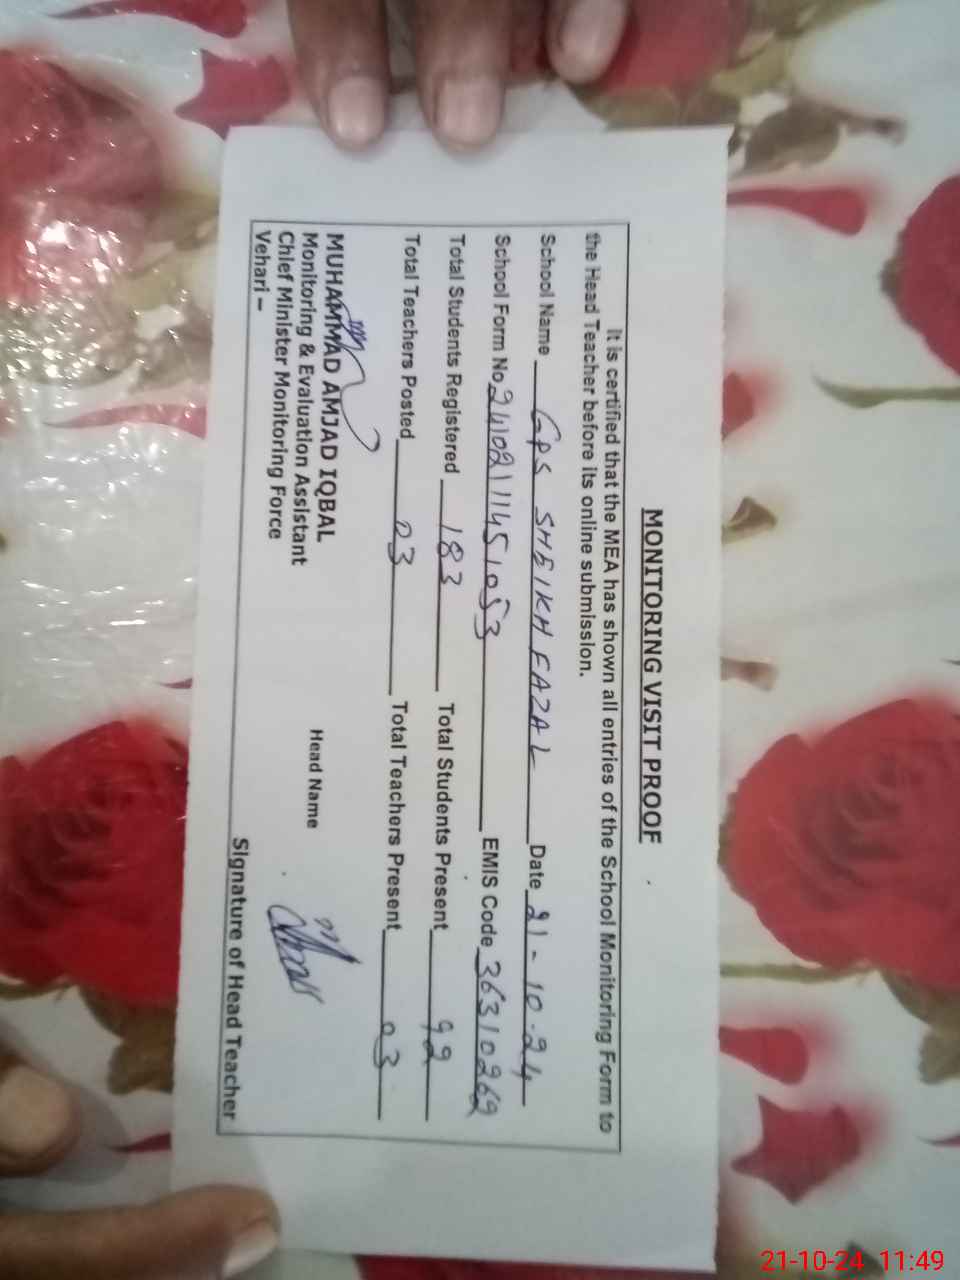 MONITORING VISIT PROOF
It is certified that the MEA has shown all entries of the School Monitoring Form to
the Head Teacher before its online submission.
School Name GPS SHEIKH FAZAL Date 21-10-24
School Form No 241021145 1053 EMIS Code 36310269
Total Students Registered 183 Total Students Present 92
Total Teachers Posted 03 Total Teachers Present 03
MUHAMMAD AMJAD IQBAL
Monitoring & Evaluation Assistant
Head Name
Chief Minister Monitoring Force
Vehari –
Signature of Head Teacher
21-10-24 11:49